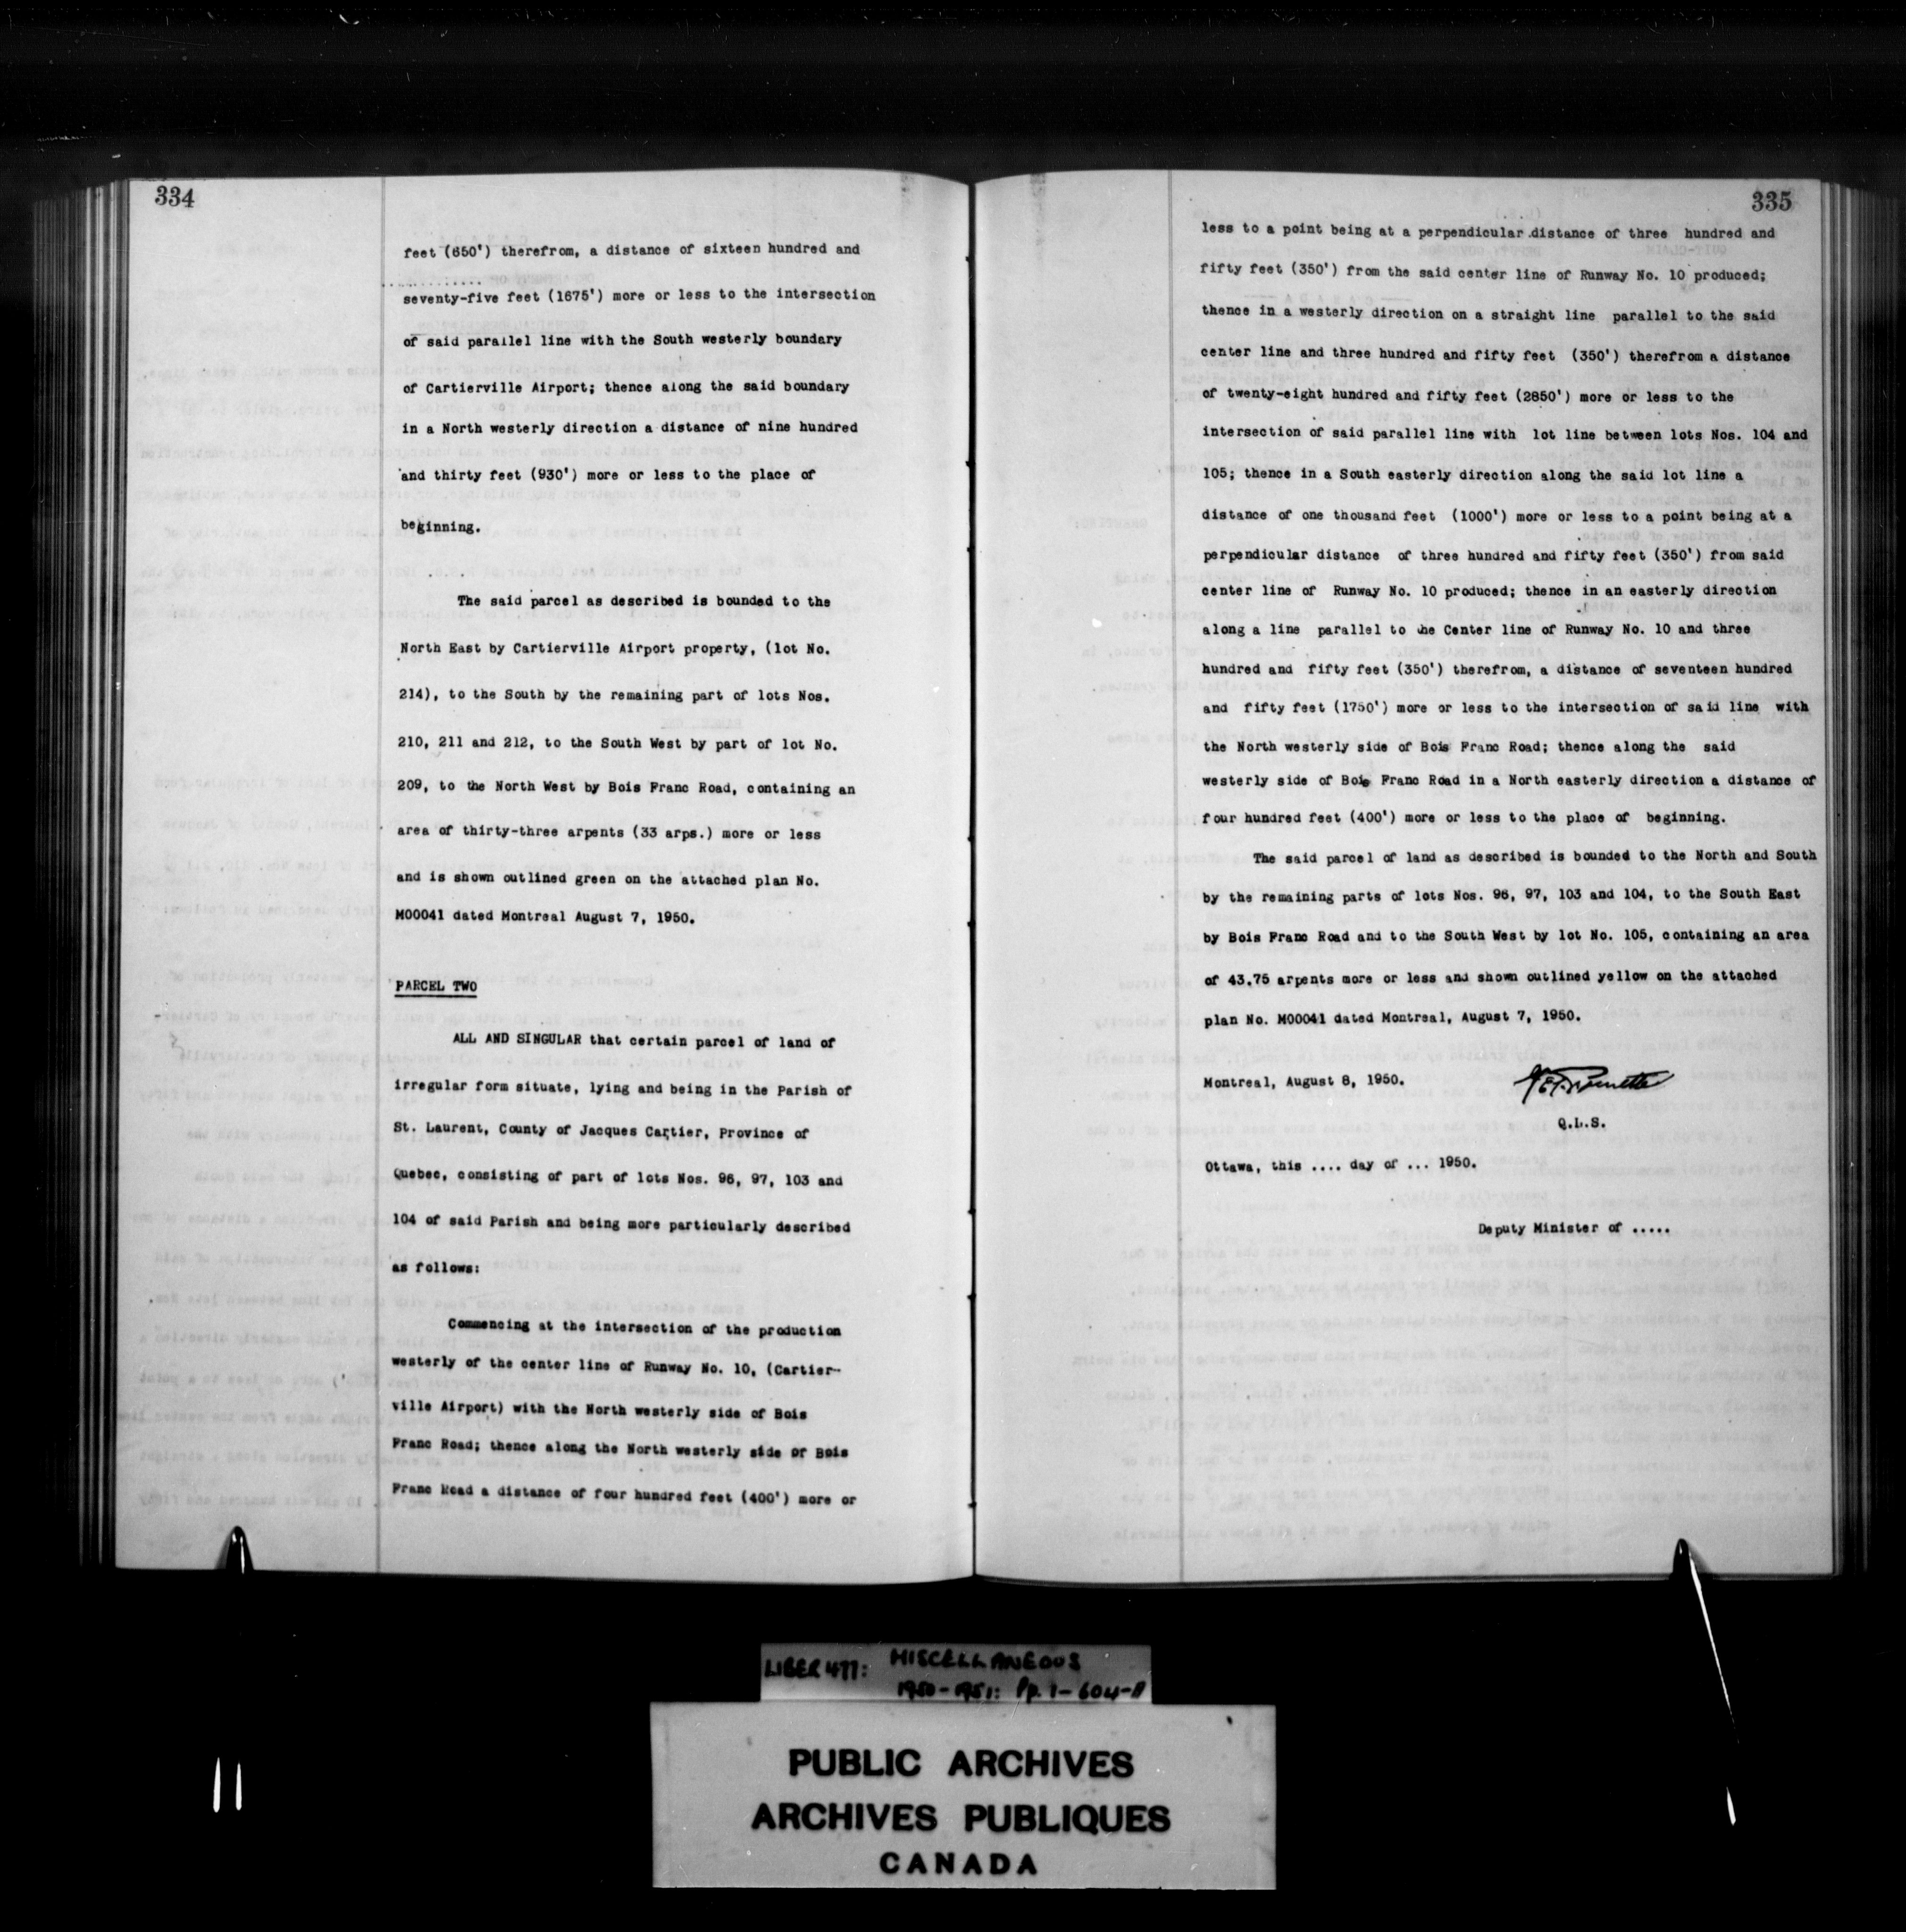 334
feet (650') therefrom, a distance of sixteen hundred and
seventy-five feet (1675') more or less to the intersection
of said parallel line with the South westerly boundary
of Cartierville Airport; thence along the said boundary
in a North westerly direction a distance of nine hundred
and thirty feet (930') more or less to the place of
beginning.
The said parcel as described is bounded to the
North East by Cartierville Airport property, (lot No.
214), to the South by the remaining part of lots Nos.
210, 211 and 212, to the South West by part of lot No.
209, to the North West by Bois Franc Road, containing an
area of thirty-three arpents (33 arps.) more or less
and is shown outlined green on the attached plan No.
M00041 dated Montreal August 7, 1950.
PARCEL TWO
ALL AND SINGULAR that certain parcel of land of
irregular form situate, lying and being in the Parish of
St. Laurent, County of Jacques Cartier, Province of
Quebec, consisting of part of lots Nos. 96, 97, 103 and
104 of said Parish and being more particularly described
as follows:
Commencing at the intersection of the production
westerly of the center line of Runway No. 10, (Cartier-
ville Airport) with the North westerly side of Bois
Franc Road; thence along the North westerly side of Bois
Franc Road a distance of four hundred feet (400') more or
335
less to a point being at a perpendicular distance of three hundred and
fifty feet (350') from the said center line of Runway No. 10 produced;
thence in a westerly direction on a straight line parallel to the said
center line and three hundred and fifty feet (350') therefrom a distance
of twenty-eight hundred and fifty feet (2850') more or less to the
intersection of said parallel line with lot line between lots Nos. 104 and
105; thence in a South easterly direction along the said lot line a
distance of one thousand feet (1000') more or less to a point being at a
perpendicular distance of three hundred and fifty feet (350') from said
center line of Runway No. 10 produced; thence in an easterly direction
along a line parallel to the Center line of Runway No. 10 and three
hundred and fifty feet (350') therefrom, a distance of seventeen hundred
and fifty feet (1750') more or less to the intersection of said line with
the North westerly side of Bois Franc Road; thence along the said
westerly side of Bois Franc Road in a North easterly direction a distance of
four hundred feet (400') more or less to the place of beginning.
The said parcel of land as described is bounded to the North and South
by the remaining parts of lots Nos. 96, 97, 103 and 104, to the South East
by Bois Franc Road and to the South West by lot No. 105, containing an area
of 43.75 arpents more or less and shown outlined yellow on the attached
plan No. M00041 dated Montreal, August 7, 1950.
Montreal, August 8, 1950.
Q.L.S.
Ottawa, this .... day of ... 1950.
Deputy Minister of .....
LIBER 477: MISCELLANEOUS
1950-1951: Pp. 1-604-A
PUBLIC ARCHIVES
ARCHIVES PUBLIQUES
CANADA